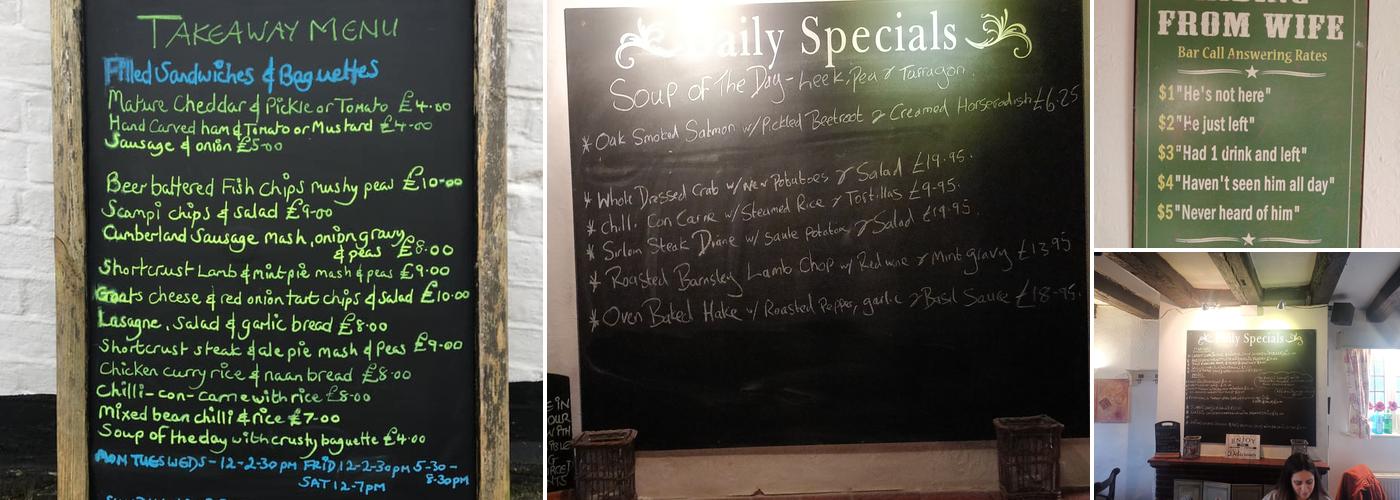 TAKEAWAY MENU
Filled Sandwiches & Baguettes
Mature Cheddar & Pickle or Tomato £4.00
Hand Carved ham & Tomato or Mustard £4-00
Sausage & onion £5-00
Beer battered Fish chips mushy peas £10-00
Scampi chips & salad £9-00
Cumberland Sausage mash, onion gravy
& peas £8.00
Shortcrust Lamb & mint pie mash & peas £9.00
Goats cheese & red onion tart chips & salad £10.00
Lasagne, Salad & garlic bread £8.00
Shortcrust steak & ale pie mash & Peas £9-00
Chicken curry rice & naan bread £8.00
Chilli-con-carne with rice £8-00
Mixed bean chilli & rice £7-00
Soup of the day with crusty baguette £4.00
MON TUES WEDS - 12-2-30pm FRID 12-2-30pm 5-30-
8-30pm
SAT 12-7pm
Daily Specials
Soup of The Day - Leek, Pea & Tarragon
* Oak Smoked Salmon w/ Pickled Beetroot & Creamed Horseradish £6.25
* Whole Dressed Crab w/ New Potatoes & Salad £19.95.
* Chilli Con Carne w/ Steamed Rice & Tortillas £9-95.
* Sirloin Steak Diane w/ Saute Potatoes & Salad £19.95
* Roasted Barnsley Lamb Chop w/ Red wine & Mint gravy £13.95
* Oven Baked Hake w/ Roasted Pepper, garlic & Basil Sauce £18-95.
FROM WIFE
Bar Call Answering Rates
$1 "He's not here"
$2 "He just left"
$3 "Had 1 drink and left"
$4 "Haven't seen him all day"
$5 "Never heard of him"
Daily Specials
ENJOY